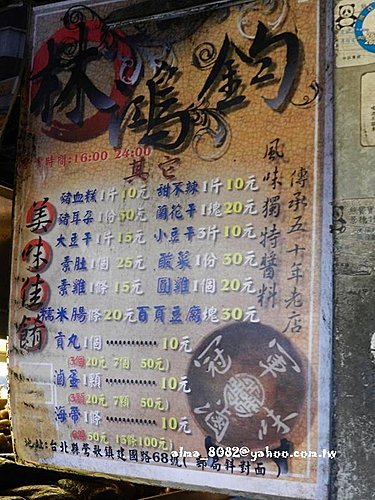 林鴻鈞
時間:16:00 24:00
其它
風味獨特醬料
傳承五十年老店
美味佳餚
豬血糕1片10元 甜不辣1片10元
豬耳朵1份50元 蘭花干1塊20元
大豆干1片15元 小豆干3片10元
素肚1個25元 酸菜1份30元
素雞1條15元 圓雞1個20元
糯米腸1條20元 百頁豆腐1塊30元
貢丸1個 ............ 10元
(3個20元 7個 50元)
滷蛋1顆 ............ 10元
(3顆20元 7顆 50元)
海帶1條 ............ 10元
50元 13條100元)
冠軍滷味
地址:台北縣鶯歌鎮建國路68號( 郵局斜對面 )
aina_8082@yahoo.com.tw